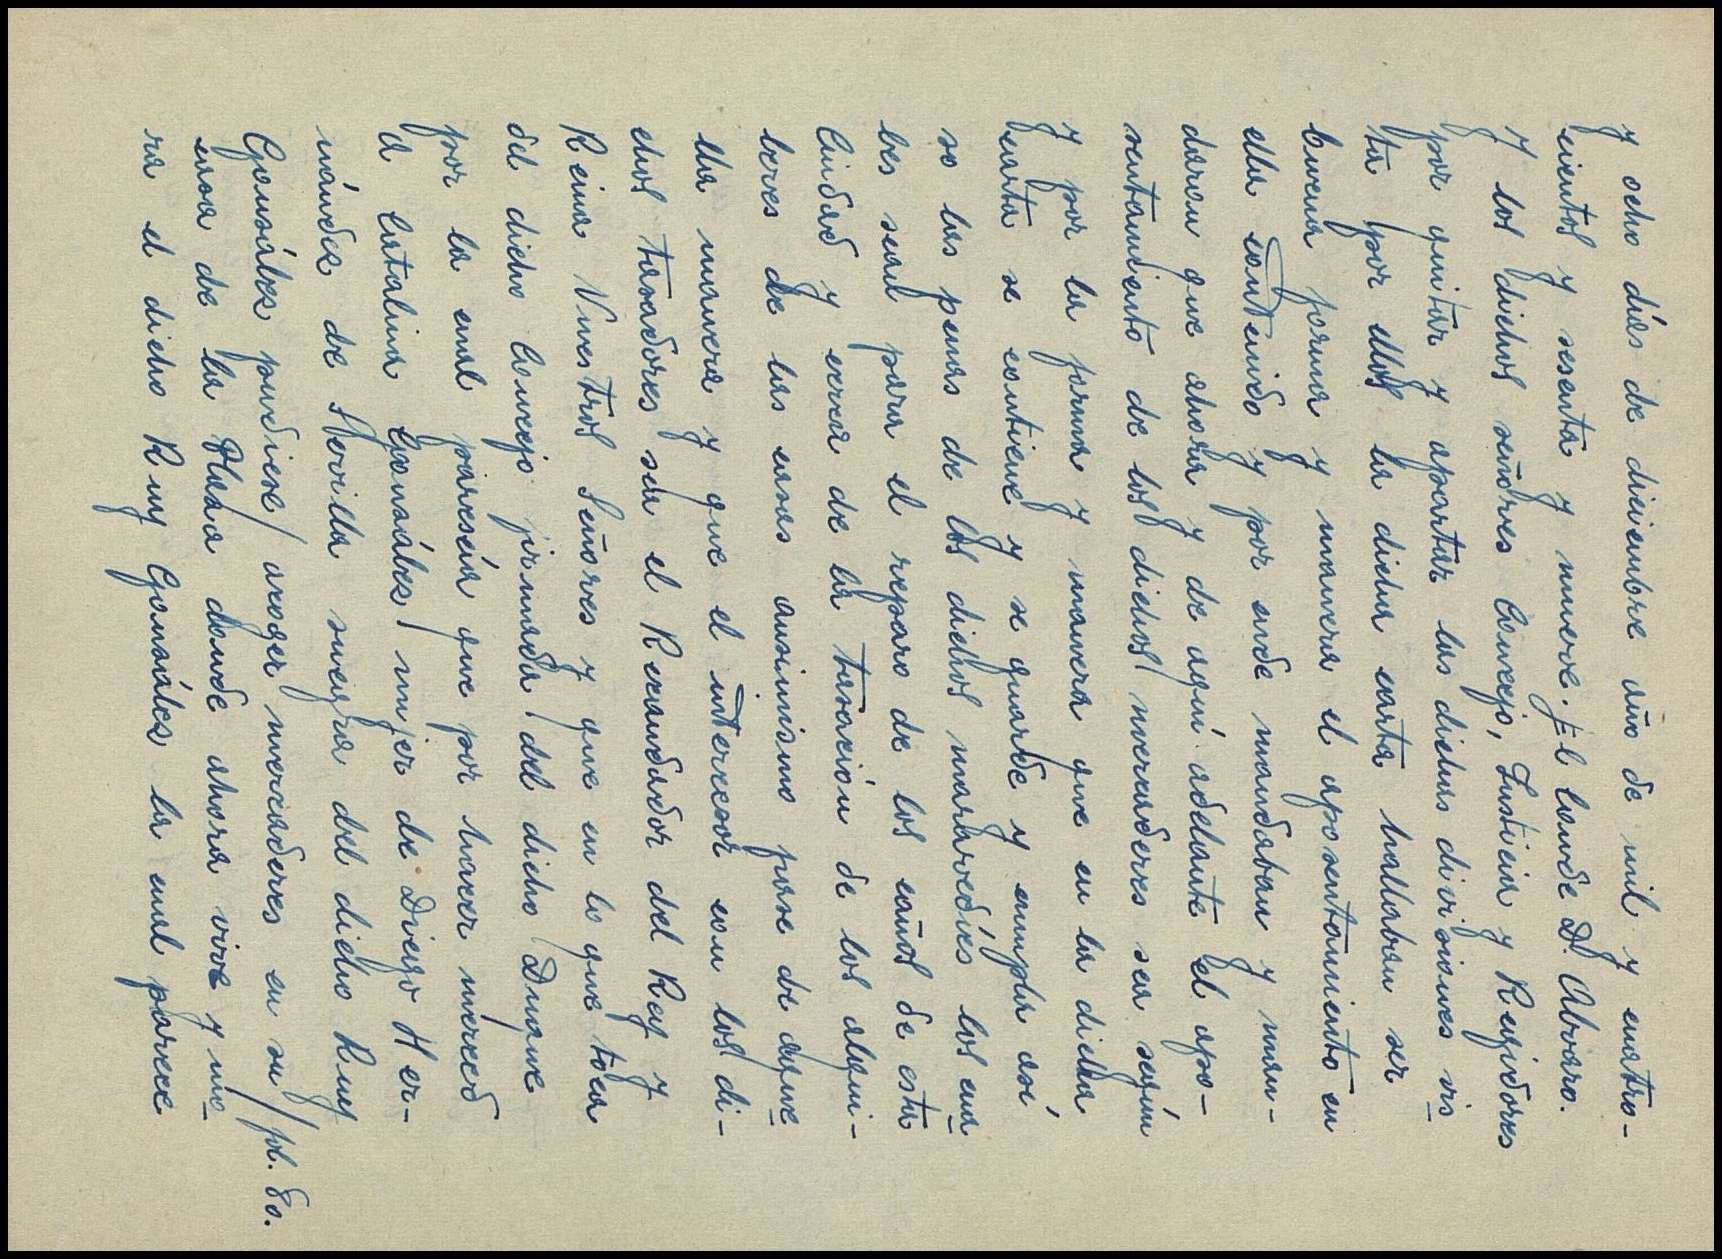 y ocho días de diciembre año de mil y cuatro-
cientos y sesenta y nueve. El Conde D. Alvaro.
Y los dichos señores Concejo, Justicia y Regidores
por quitar y apartar las dichas divisiones vis
ta por ellos la dicha carta hallaban ser
buena forma y manera el aposentamiento en
ella contenido y por ende mandaban y man-
daron que ahora y de aquí adelante el apo-
sentamiento de los dichos mercaderes sea según
y por la forma y manera que en la dicha
carta se contiene y se guarde y cumpla así
so las penas de los dichos maravedíes los cua
les sean para el reparo de los caños de esta
Ciudad y cerca de la tasación de los alqui-
leres de las casas asimismo pase de aque
lla manera y que el intercesor con los di-
chos tasadores sea el Recaudador del Rey y
Reina Nuestros Señores y que en lo que toca
del dicho Concejo firmada del dicho Duque
por la cual parescía que por hacer merced
a Catalina González mujer de Diego Her-
nández de Sevilla suegra del dicho Ruy
González pudiese acoger mercaderes en su / fol. 80.
casa de la Plaza donde ahora vive y mo
ra el dicho Ruy González la cual parece